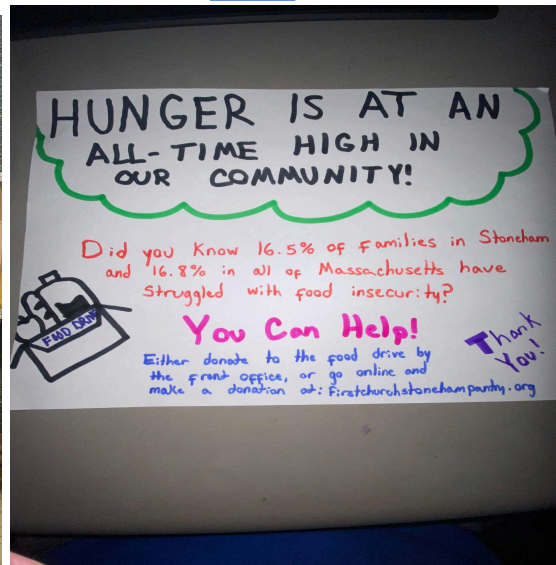 HUNGER IS AT AN
ALL-TIME HIGH IN
OUR COMMUNITY!
Did you know 16.5% of families in Stoneham
and 16.8% in all of Massachusetts have
struggled with food insecurity?
You Can Help!
FOOD DRIVE
Thank
You!
Either donate to the food drive by
the front office, or go online and
make a donation at: Firstchurchstonehampantry.org